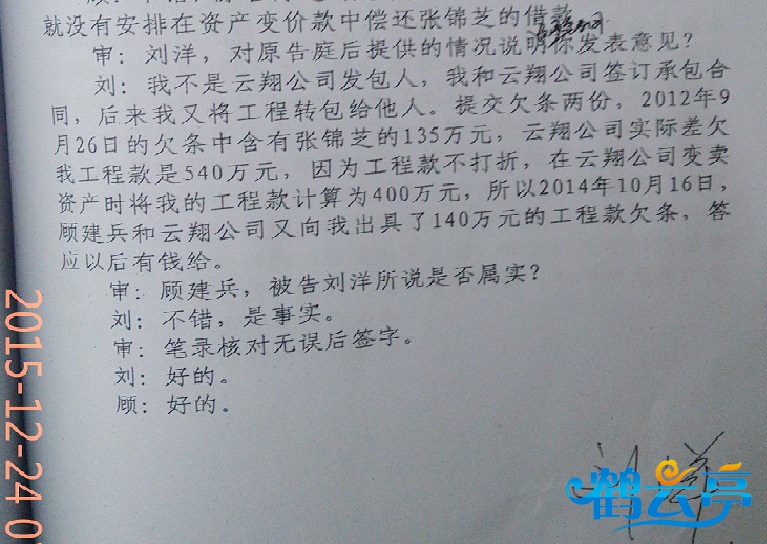 就没有安排在资产变价款中偿还张锦芝的借款
审：刘洋，对原告庭后提供的情况说明你发表意见？
刘：我不是云翔公司发包人，我和云翔公司签订承包合
同，后来我又将工程转包给他人。提交欠条两份，2012年9
月26日的欠条中含有张锦芝的135万元，云翔公司实际差欠
我工程款是540万元，因为工程款不打折，在云翔公司变卖
资产时将我的工程款计算为400万元，所以2014年10月16日，
顾建兵和云翔公司又向我出具了140万元的工程款欠条，答
应以后有钱给。
审：顾建兵，被告刘洋所说是否属实？
刘：不错，是事实。
审：笔录核对无误后签字。
刘：好的。
顾：好的。
刘洋
鹤云亭
2015-12-24 0